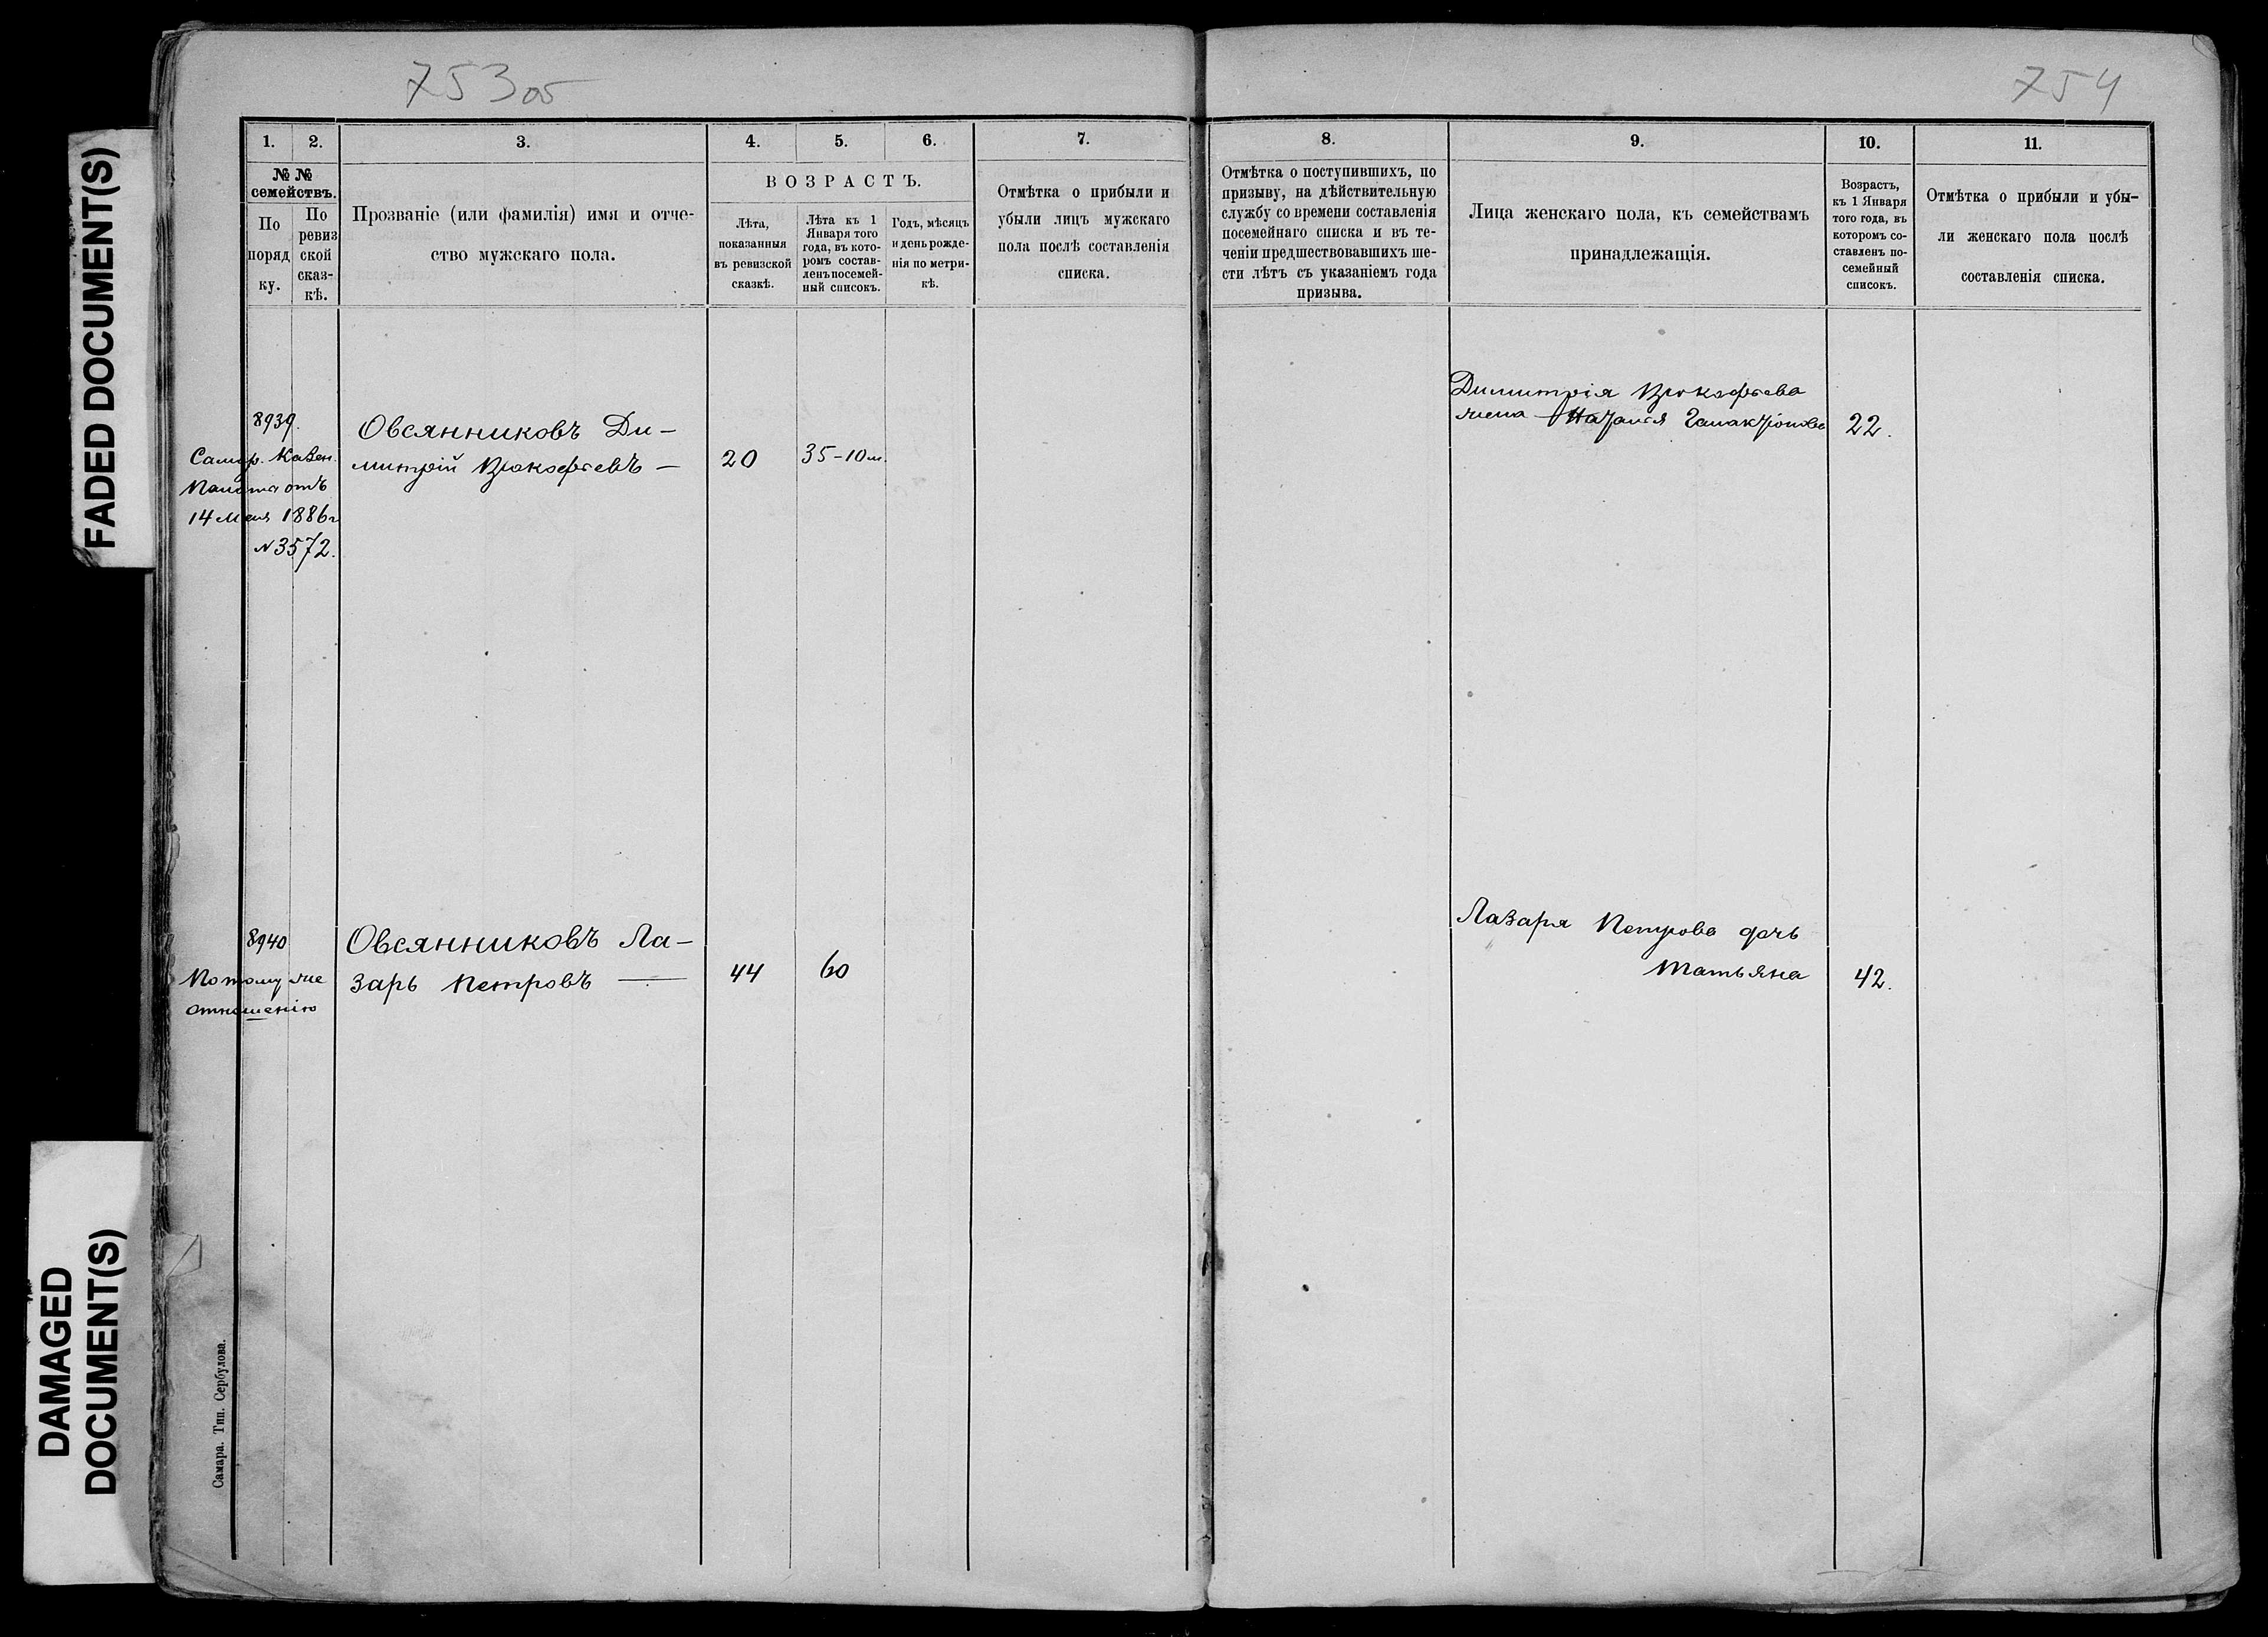 753об
754
FADED DOCUMENT(S)
DAMAGED
DOCUMENT(S)
1.
2.
3.
4.
5.
6.
7.
№ №
семействъ.
По
поряд
ку.
По
ревиз
ской
сказ-
кѣ.
Прозваніе (или фамилія) имя и отче-
ство мужскаго пола.
ВОЗРАСТЪ.
Лѣта,
показанныя
въ ревизской
сказкѣ.
Лѣта къ 1
Января того
года, въ кото-
ромъ состав-
ленъ посемей-
ный списокъ.
Годъ, мѣсяцъ
и день рожде-
нія по метри-
кѣ.
Отмѣтка о прибыли и
убыли лицъ мужскаго
пола послѣ составленія
списка.
8.
9.
10.
11.
Отмѣтка о поступившихъ, по
призыву, на дѣйствительную
службу со времени составленія
посемейнаго списка и въ те-
ченіи предшествовавшихъ ше-
сти лѣтъ съ указаніемъ года
призыва.
Лица женскаго пола, къ семействамъ
принадлежащія.
Возрастъ,
къ 1 Января
того года, въ
которомъ со-
ставленъ по-
семейный
списокъ.
Отмѣтка о прибыли и убы-
ли женскаго пола послѣ
составленія списка.
8939.
Самар. Казен.
Палата отъ
14 Мая 1886г
№3572.
Овсянниковъ Ди-
митрій Прокофьевъ —
20
35-10м.
Димитрія Прокофьева
жена
22.
8940
По тому же
отношенію
Овсянниковъ Ла-
зарь Петровъ —
44
60
Лазаря Петрова дочь
Татьяна
42.
Самара. Тип. Сербулова.